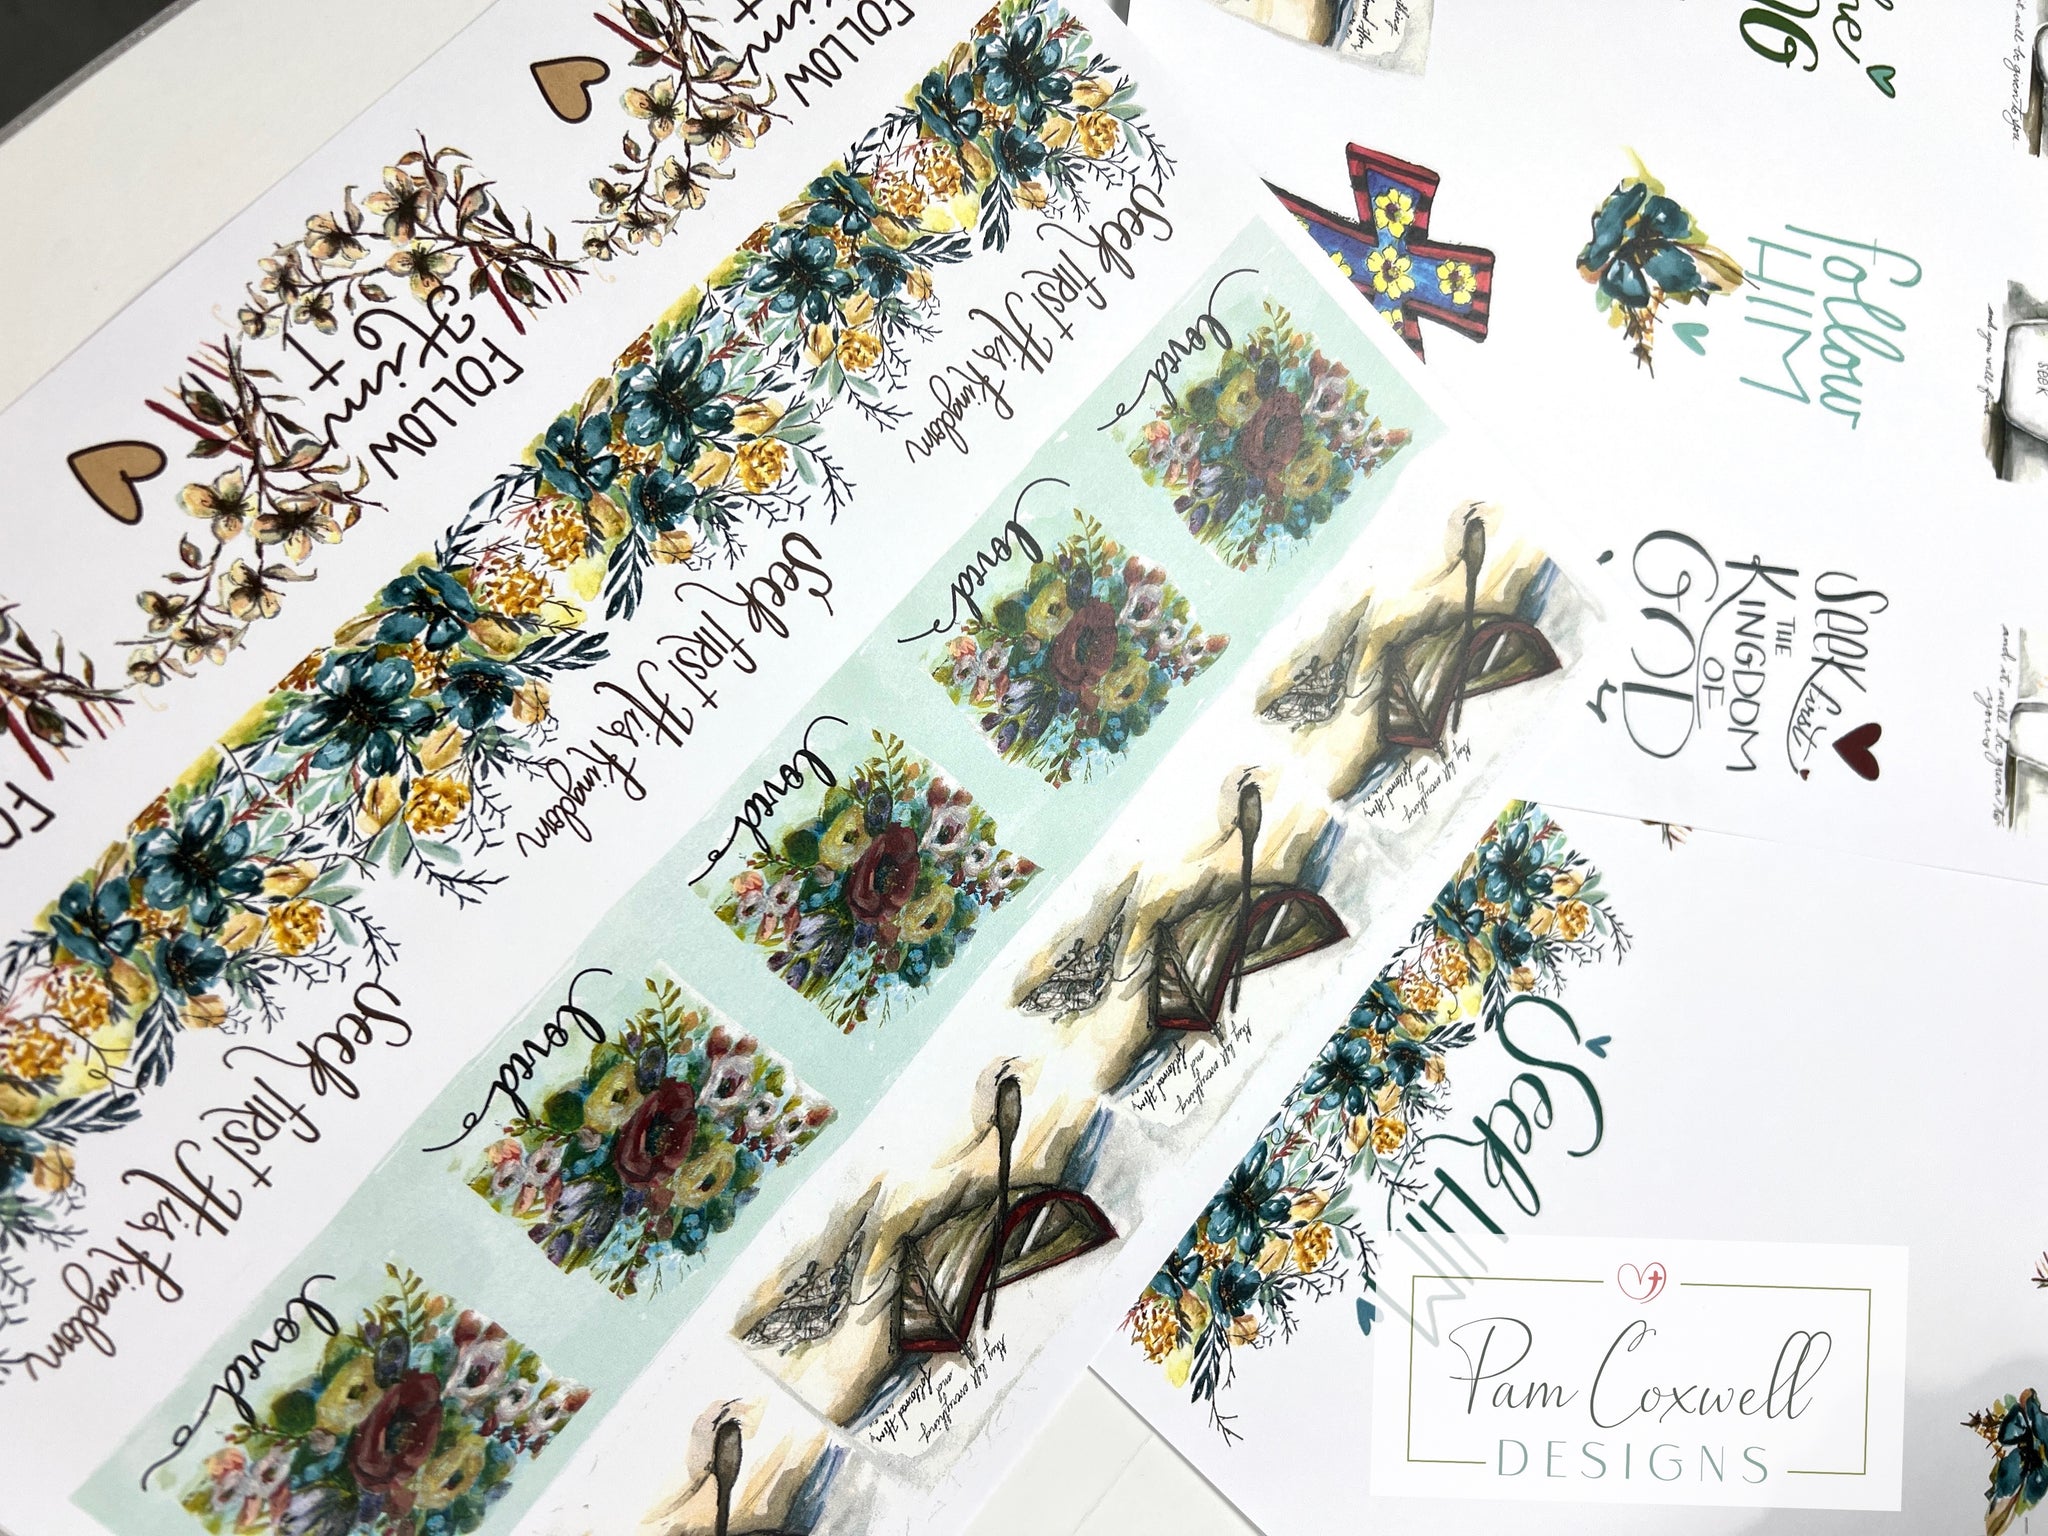 FOLLOW
Him
FOLLOW
Him
Seek first
His
Kingdom
Seek first
His
Kingdom
Seek first
His
Kingdom
loved
loved
loved
loved
loved
they left everything
and
followed Him
they left everything
and
followed Him
they left everything
and
followed Him
he
follow
HIM
Seek first
THE
KINGDOM
OF
GOD
Seek
HIM
seek
and you will find
and it will be given to you
Pam Coxwell
DESIGNS